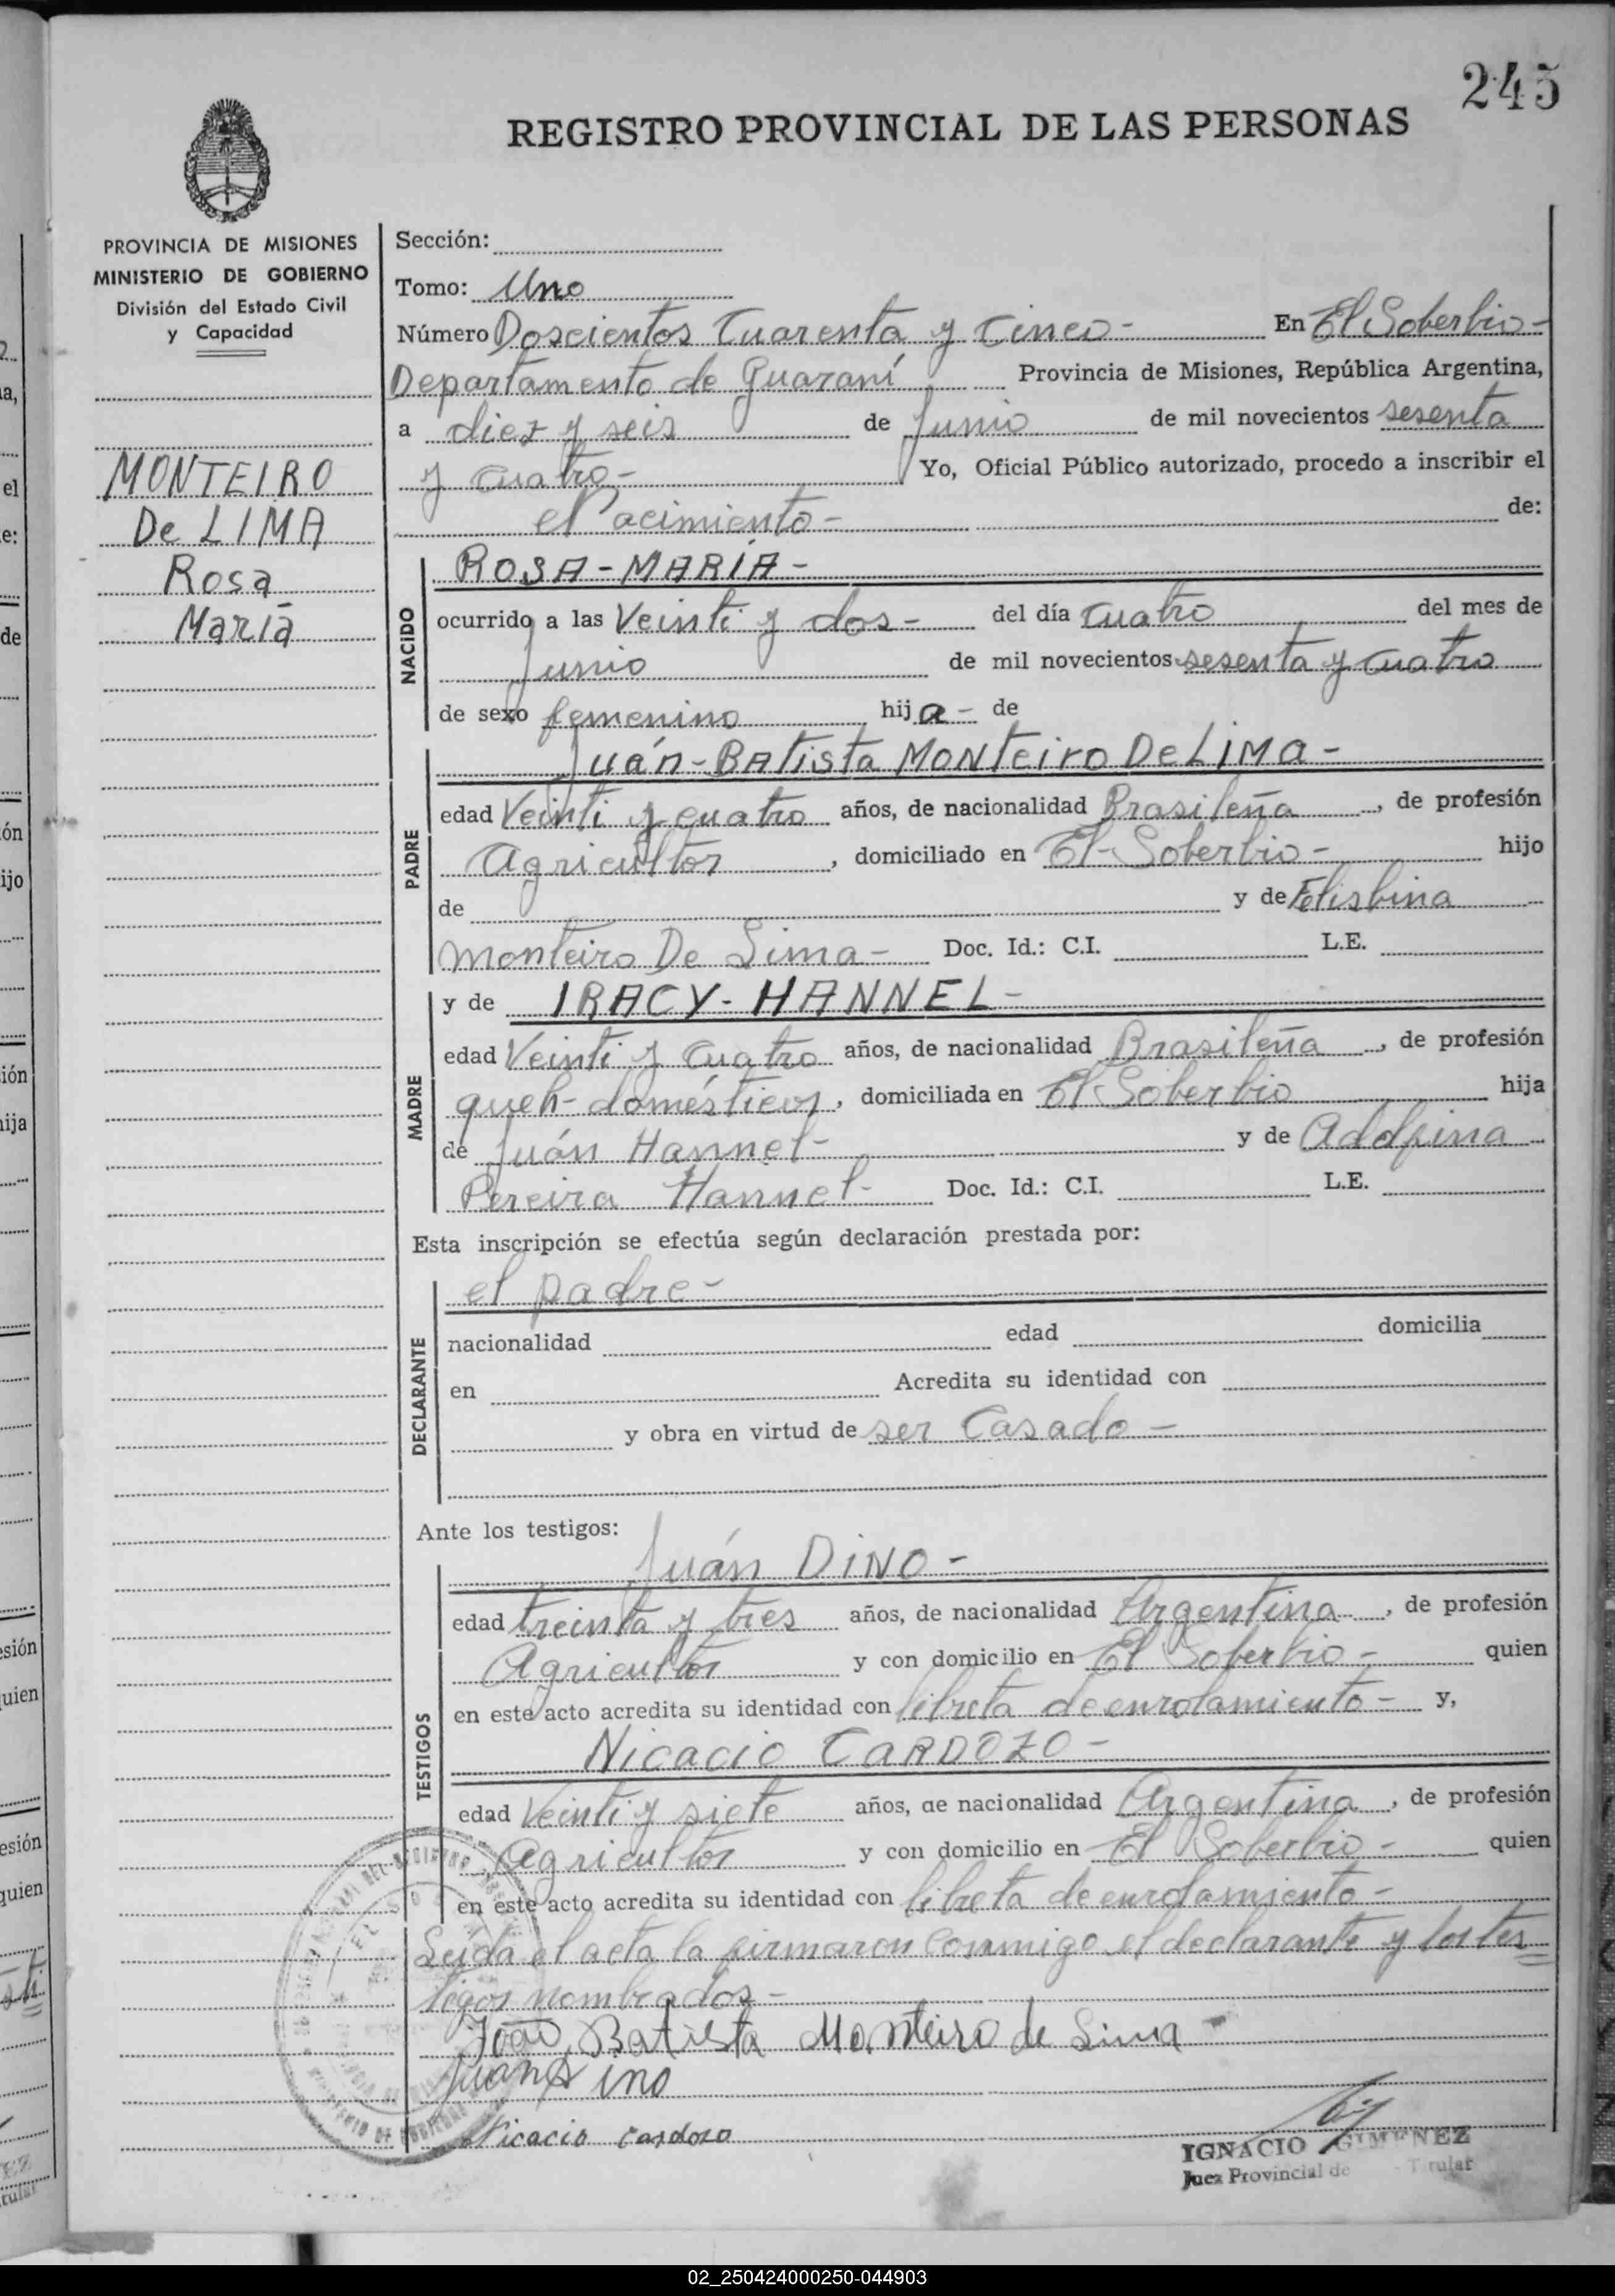 245
REGISTRO PROVINCIAL DE LAS PERSONAS
PROVINCIA DE MISIONES
MINISTERIO DE GOBIERNO
División del Estado Civil
y Capacidad
MONTEIRO
De LIMA
Rosa
María
Sección:
Tomo: Uno
Número Doscientos Cuarenta y Cinco - En El Soberbio -
Departamento de Guaraní Provincia de Misiones, República Argentina,
a diez y seis de Junio de mil novecientos sesenta
y cuatro - Yo, Oficial Público autorizado, procedo a inscribir el
acimiento - de:
NACIDO
ROSA - MARÍA -
ocurrido a las Veinti y dos - del día Cuatro del mes de
Junio de mil novecientos sesenta y cuatro
de sexo femenino hija - de
PADRE
Juán - BAtista MONteiro De LiMa -
edad Veinti y cuatro años, de nacionalidad Brasileña, de profesión
Agricultor, domiciliado en El - Soberbio - hijo
de y de Elisbina
Monteiro De Lima - Doc. Id.: C.I. L.E.
MADRE
y de IRACY - HANNEL -
edad Veinti y Cuatro años, de nacionalidad Brasileña, de profesión
queh - doméstico, domiciliada en El Soberbio hija
de Juán Hannel - y de
Pereira Hannel - Doc. Id.: C.I. L.E.
Esta inscripción se efectúa según declaración prestada por:
DECLARANTE
el padre -
nacionalidad edad domicilia
en Acredita su identidad con
y obra en virtud de ser Casado -
Ante los testigos:
TESTIGOS
Juán DINO -
edad treinta y tres años, de nacionalidad Argentina, de profesión
Agricultor y con domicilio en El Soberbio - quien
en este acto acredita su identidad con libreta de enrolamiento - y,
Nicacio CARDOZO -
edad Veinti y siete años, de nacionalidad Argentina, de profesión
Agricultor y con domicilio en El Soberbio - quien
en este acto acredita su identidad con libreta de enrolamiento -
Leída el acta la firmaron conmigo el declarante y los tes
tigos nombrados -
João Batista Monteiro de Lima -
Juan Dino
Nicacio Cardozo
IGNACIO GIMENEZ
Juez Provincial de Titular
02_250424000250-044903